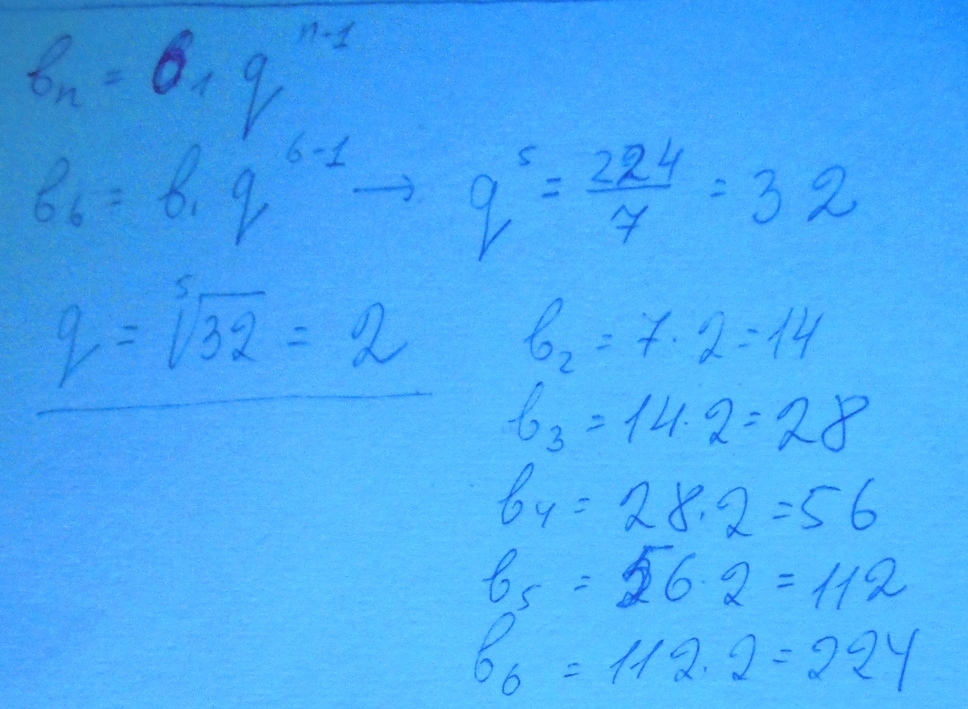 bₙ = b₁ qⁿ⁻¹
b₆ = b₁ q⁶⁻¹ → q⁵ = 224/7 = 32
q = ⁵√32 = 2
b₂ = 7·2=14
b₃ = 14·2=28
b₄ = 28·2=56
b₅ = 56·2=112
b₆ = 112·2=224